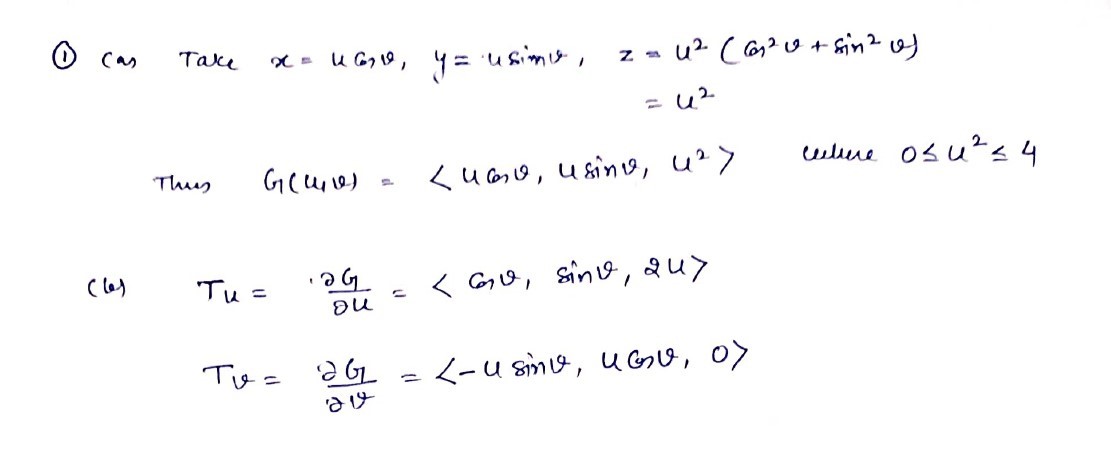 ① (a) Take x = u cos v, y = u sin v, z = u² (cos² v + sin² v)
= u²
Thus G(u,v) = <u cos v, u sin v, u²> where 0 ≤ u² ≤ 4
(b) Tu = ∂G/∂u = < cos v, sin v, 2u>
Tv = ∂G/∂v = <-u sin v, u cos v, 0>